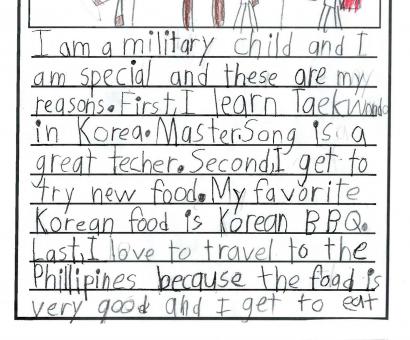 I am a military child and I
am special and these are my
reasons. First, I learn Taekwondo
in Korea. Master Song is a
great techer. Second, I get to
try new food. My favorite
Korean food is Korean BBQ.
Last, I love to travel to the
Phillipines because the food is
very good and I get to eat